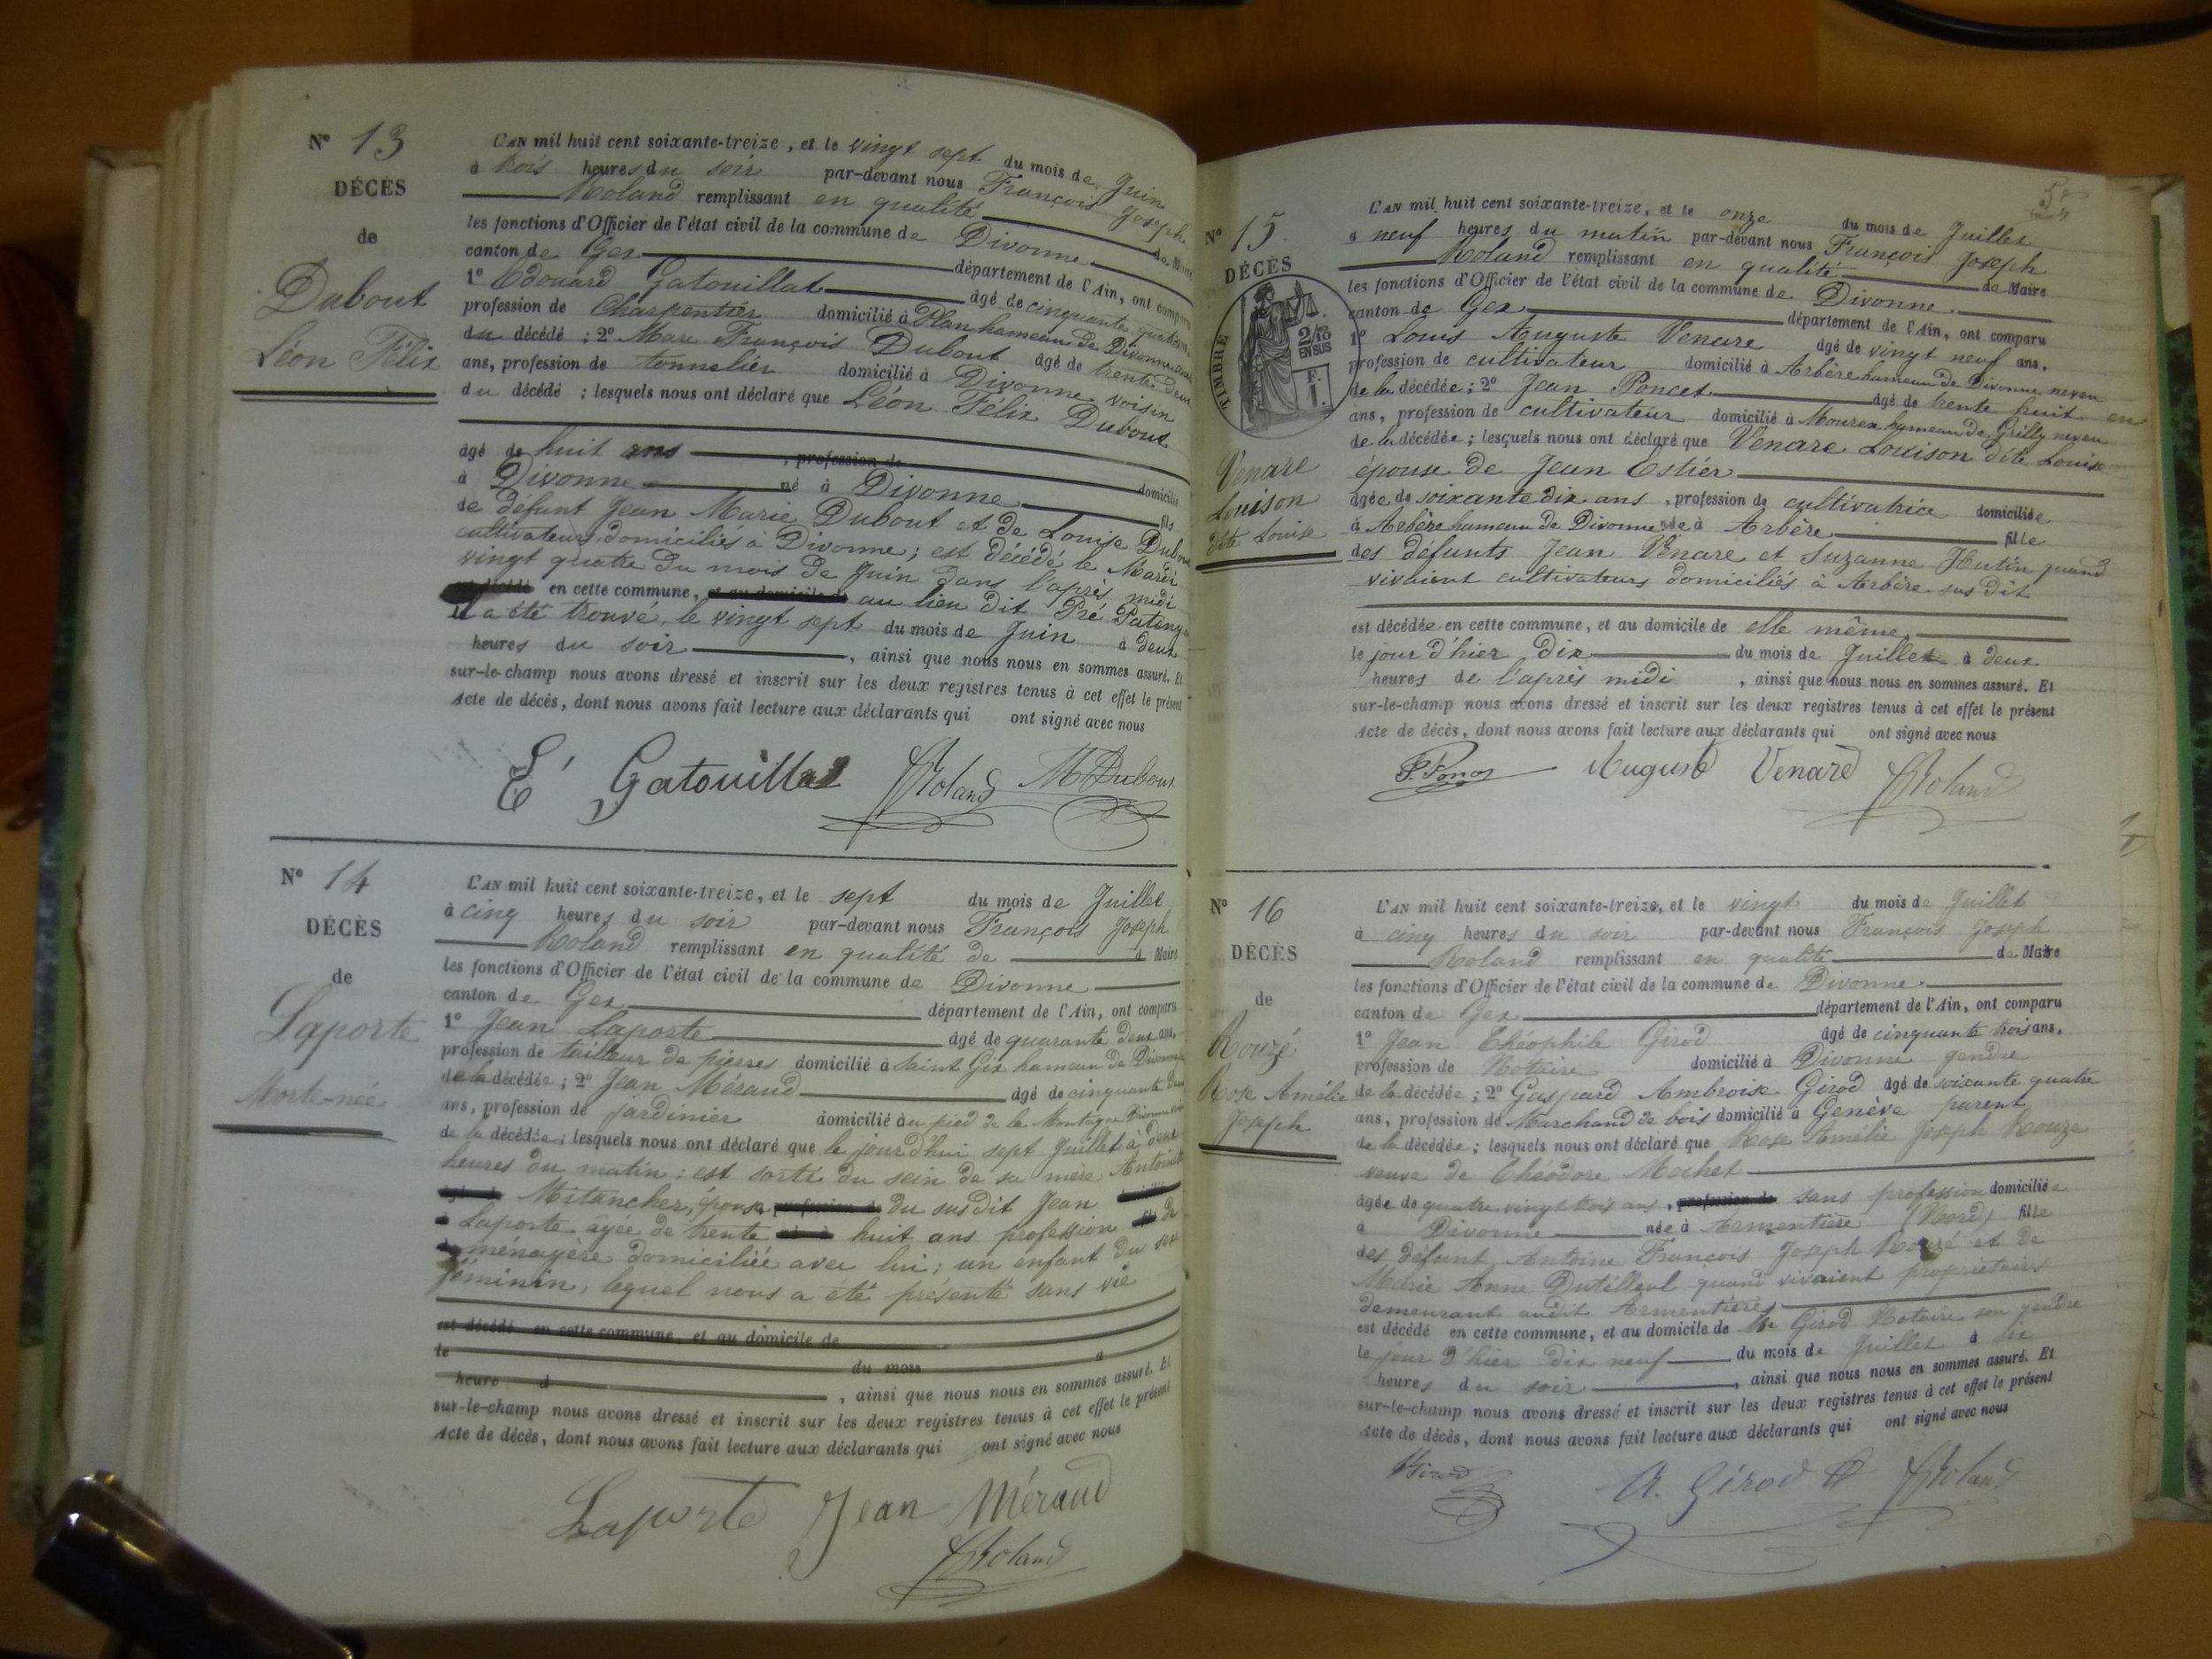 N° 13
DÉCÈS
de
Dubout
Léon Félix
L'AN mil huit cent soixante-treize, et le vingt sept du mois de Juin
à trois heures du soir par-devant nous François Joseph
Roland remplissant en qualité de Maire
les fonctions d'Officier de l'état civil de la commune de Divonne
canton de Gex département de l'Ain, ont comparu
1° Edouard Gatouillat âgé de cinquante quatre
profession de Charpentier domicilié à Plan hameau de Divonne
du décédé ; 2° Marc François Dubout âgé de trente deux
ans, profession de tonnelier domicilié à Divonne voisin
du décédé ; lesquels nous ont déclaré que Léon Félix Dubout
âgé de huit ans , profession de domicilié
à Divonne né à Divonne fils
de défunt Jean Marie Dubout et de Louise Dubout
cultivateurs domiciliés à Divonne ; est décédé le Mardi
vingt quatre du mois de Juin dans l'après midi
en cette commune, et au domicile de au lieu dit Pré
il a été trouvé, le vingt sept du mois de Juin à deux
heures du soir , ainsi que nous nous en sommes assuré. Et
sur-le-champ nous avons dressé et inscrit sur les deux registres tenus à cet effet le présent
Acte de décès, dont nous avons fait lecture aux déclarants qui ont signé avec nous
E Gatouillat Roland M Dubout
N° 14
DÉCÈS
de
Laporte
Morte-née
L'AN mil huit cent soixante-treize, et le sept du mois de Juillet
à cinq heures du soir par-devant nous François Joseph
Roland remplissant en qualité de Maire
les fonctions d'Officier de l'état civil de la commune de Divonne
canton de Gex département de l'Ain, ont comparu
1° Jean Laporte âgé de quarante deux ans,
profession de tailleur de pierres domicilié à Saint Gix hameau de Divonne
de la décédée ; 2° Jean Méraud âgé de cinquante deux
ans, profession de jardinier domicilié au pied de la Montagne Divonne
de la décédée ; lesquels nous ont déclaré que le jour d'hui sept Juillet à deux
heures du matin ; est sorti du sein de sa mère Antoinette
Mitancher, épouse du susdit Jean
Laporte âgée de trente huit ans profession de
ménagère domiciliée avec lui ; un enfant du sexe
féminin, lequel nous a été présenté sans vie
est décédé en cette commune, et au domicile de
le du mois à
heure d , ainsi que nous nous en sommes assuré. Et
sur-le-champ nous avons dressé et inscrit sur les deux registres tenus à cet effet le présent
Acte de décès, dont nous avons fait lecture aux déclarants qui ont signé avec nous
Laporte Jean Méraud
Roland
N° 15
DÉCÈS
TIMBRE
2/10
EN SUS
F.
1.
Venare
Louison
dite Louise
L'AN mil huit cent soixante-treize, et le onze du mois de Juillet
à neuf heures du matin par-devant nous François Joseph
Roland remplissant en qualité de Maire
les fonctions d'Officier de l'état civil de la commune de Divonne
canton de Gex département de l'Ain, ont comparu
1° Louis Auguste Venare âgé de vingt neuf ans,
profession de cultivateur domicilié à Arbère hameau de Divonne neveu
de la décédée ; 2° Jean Poncet âgé de trente huit
ans, profession de cultivateur domicilié à Mourex hameau de Grilly neveu en
de la décédée ; lesquels nous ont déclaré que Venare Louison dite Louise
épouse de Jean Estiér
âgée de soixante dix ans , profession de cultivatrice domiciliée
à Arbère hameau de Divonne née à Arbère fille
des défunts Jean Venare et Suzanne Hutin quand
vivaient cultivateurs domiciliés à Arbère sus dit
est décédée en cette commune, et au domicile de elle même
le jour d'hier dix du mois de Juillet à deux
heures de l'après midi , ainsi que nous nous en sommes assuré. Et
sur-le-champ nous avons dressé et inscrit sur les deux registres tenus à cet effet le présent
Acte de décès, dont nous avons fait lecture aux déclarants qui ont signé avec nous
Auguste Venare Roland
N° 16
DÉCÈS
de
Rouzé
Rose Amélie
Joseph
L'AN mil huit cent soixante-treize, et le vingt du mois de Juillet
à cinq heures du soir par-devant nous François Joseph
Roland remplissant en qualité de Maire
les fonctions d'Officier de l'état civil de la commune de Divonne
canton de Gex département de l'Ain, ont comparu
1° Jean Théophile Girod âgé de cinquante trois ans,
profession de Notaire domicilié à Divonne gendre
de la décédée ; 2° Gaspard Ambroise Girod âgé de soixante quatre
ans, profession de Marchand de bois domicilié à Genève parent
de la décédée ; lesquels nous ont déclaré que Rose Amélie Joseph Rouzé
veuve de Théodore Mochet
âgée de quatre vingt trois ans , profession de sans profession domiciliée
à Divonne née à Armentière (Nord) fille
des défunt Antoine François Joseph Rouzé et de
Marie Anne Dutilleul quand vivaient propriétaires
demeurant audit Armentières
est décédé en cette commune, et au domicile de Me Girod Notaire son gendre
le jour d'hier dix neuf du mois de Juillet à six
heures du soir , ainsi que nous nous en sommes assuré. Et
sur-le-champ nous avons dressé et inscrit sur les deux registres tenus à cet effet le présent
Acte de décès, dont nous avons fait lecture aux déclarants qui ont signé avec nous
Girod A. Girod Roland